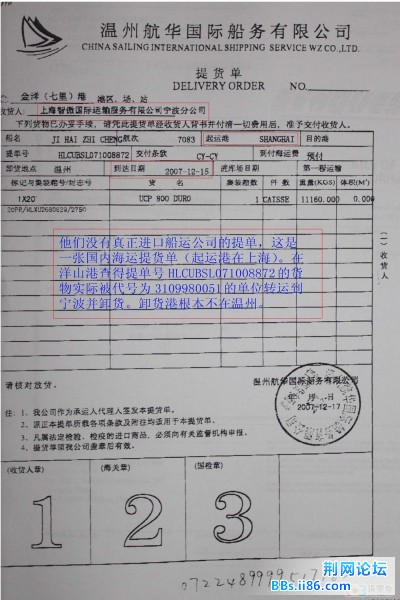 温州航华国际船务有限公司
CHINA SAILING INTERNATIONAL SHIPPING SERVICE WZ CO.,LTD.
提货单
DELIVERY ORDER NO.
金洋(七里)港 港区、场、站
收货人: 上海智傲国际运输服务有限公司宁波分公司
下列货物已办妥手续,请凭此提货单经收货人背书并付清一切费用后,准予交付收货人。
船名 JI HAI ZHI CHENG 航次 7083 起运港 SHANGHAI 目的港
提单号 HLCUBSL071008872 交付条款 CY-CY 到付海运费 预付
卸货地点 温州 到达日期 2007-12-15 进库场日期 第一程运输
标记与集装箱号/封志号 货名 集装箱数 件数 重量(KGS) 体积(M³)
1X20' UCP 800 DURO 1 CAISSE 11160.00 0.000
他们没有真正进口船运公司的提单,这是
一张国内海运提货单(起运港在上海)。在
洋山港查得提单号HLCUBSL071008872的货
物实际被代号为3109980051的单位转运到
宁波并卸货。卸货港根本不在温州。
(一)收货人
请核对放货。
温州航华国际船务有限公司
年 月 日
2007-12-17
注:1、我公司作为承运人代理人签发本提货单。
2、原正本提单所载各项条款及附注均适用于本提货单。
3、凡属法定检验、检疫的进口商品,必须向有关监督机构申报。
4、提货单须我公司盖章后有效。
(收货人章) (海关章) (国检章)
1 2 3
荆网论坛
BBs.ii86.com